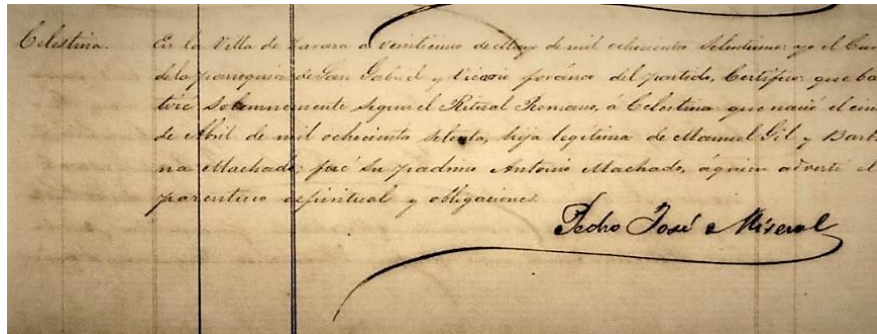 Celestina. En la Villa de Zarara a veinticinco de Mayo de mil ochocientos setentiuno: yo el Cura
de la parroquia de San Gabriel y Vicario foráneo del partido, Certifico: que bau
ticé Solemnemente segun el Ritual Romano, á Celestina que nació el cinco
de Abril de mil ochocientos setenta, hija legitima de Manuel Gil y Barti
na Machado; fué su padrino Antonio Machado, á quien advertí el
parentesco espiritual y obligaciones.
Pedro José Miserol